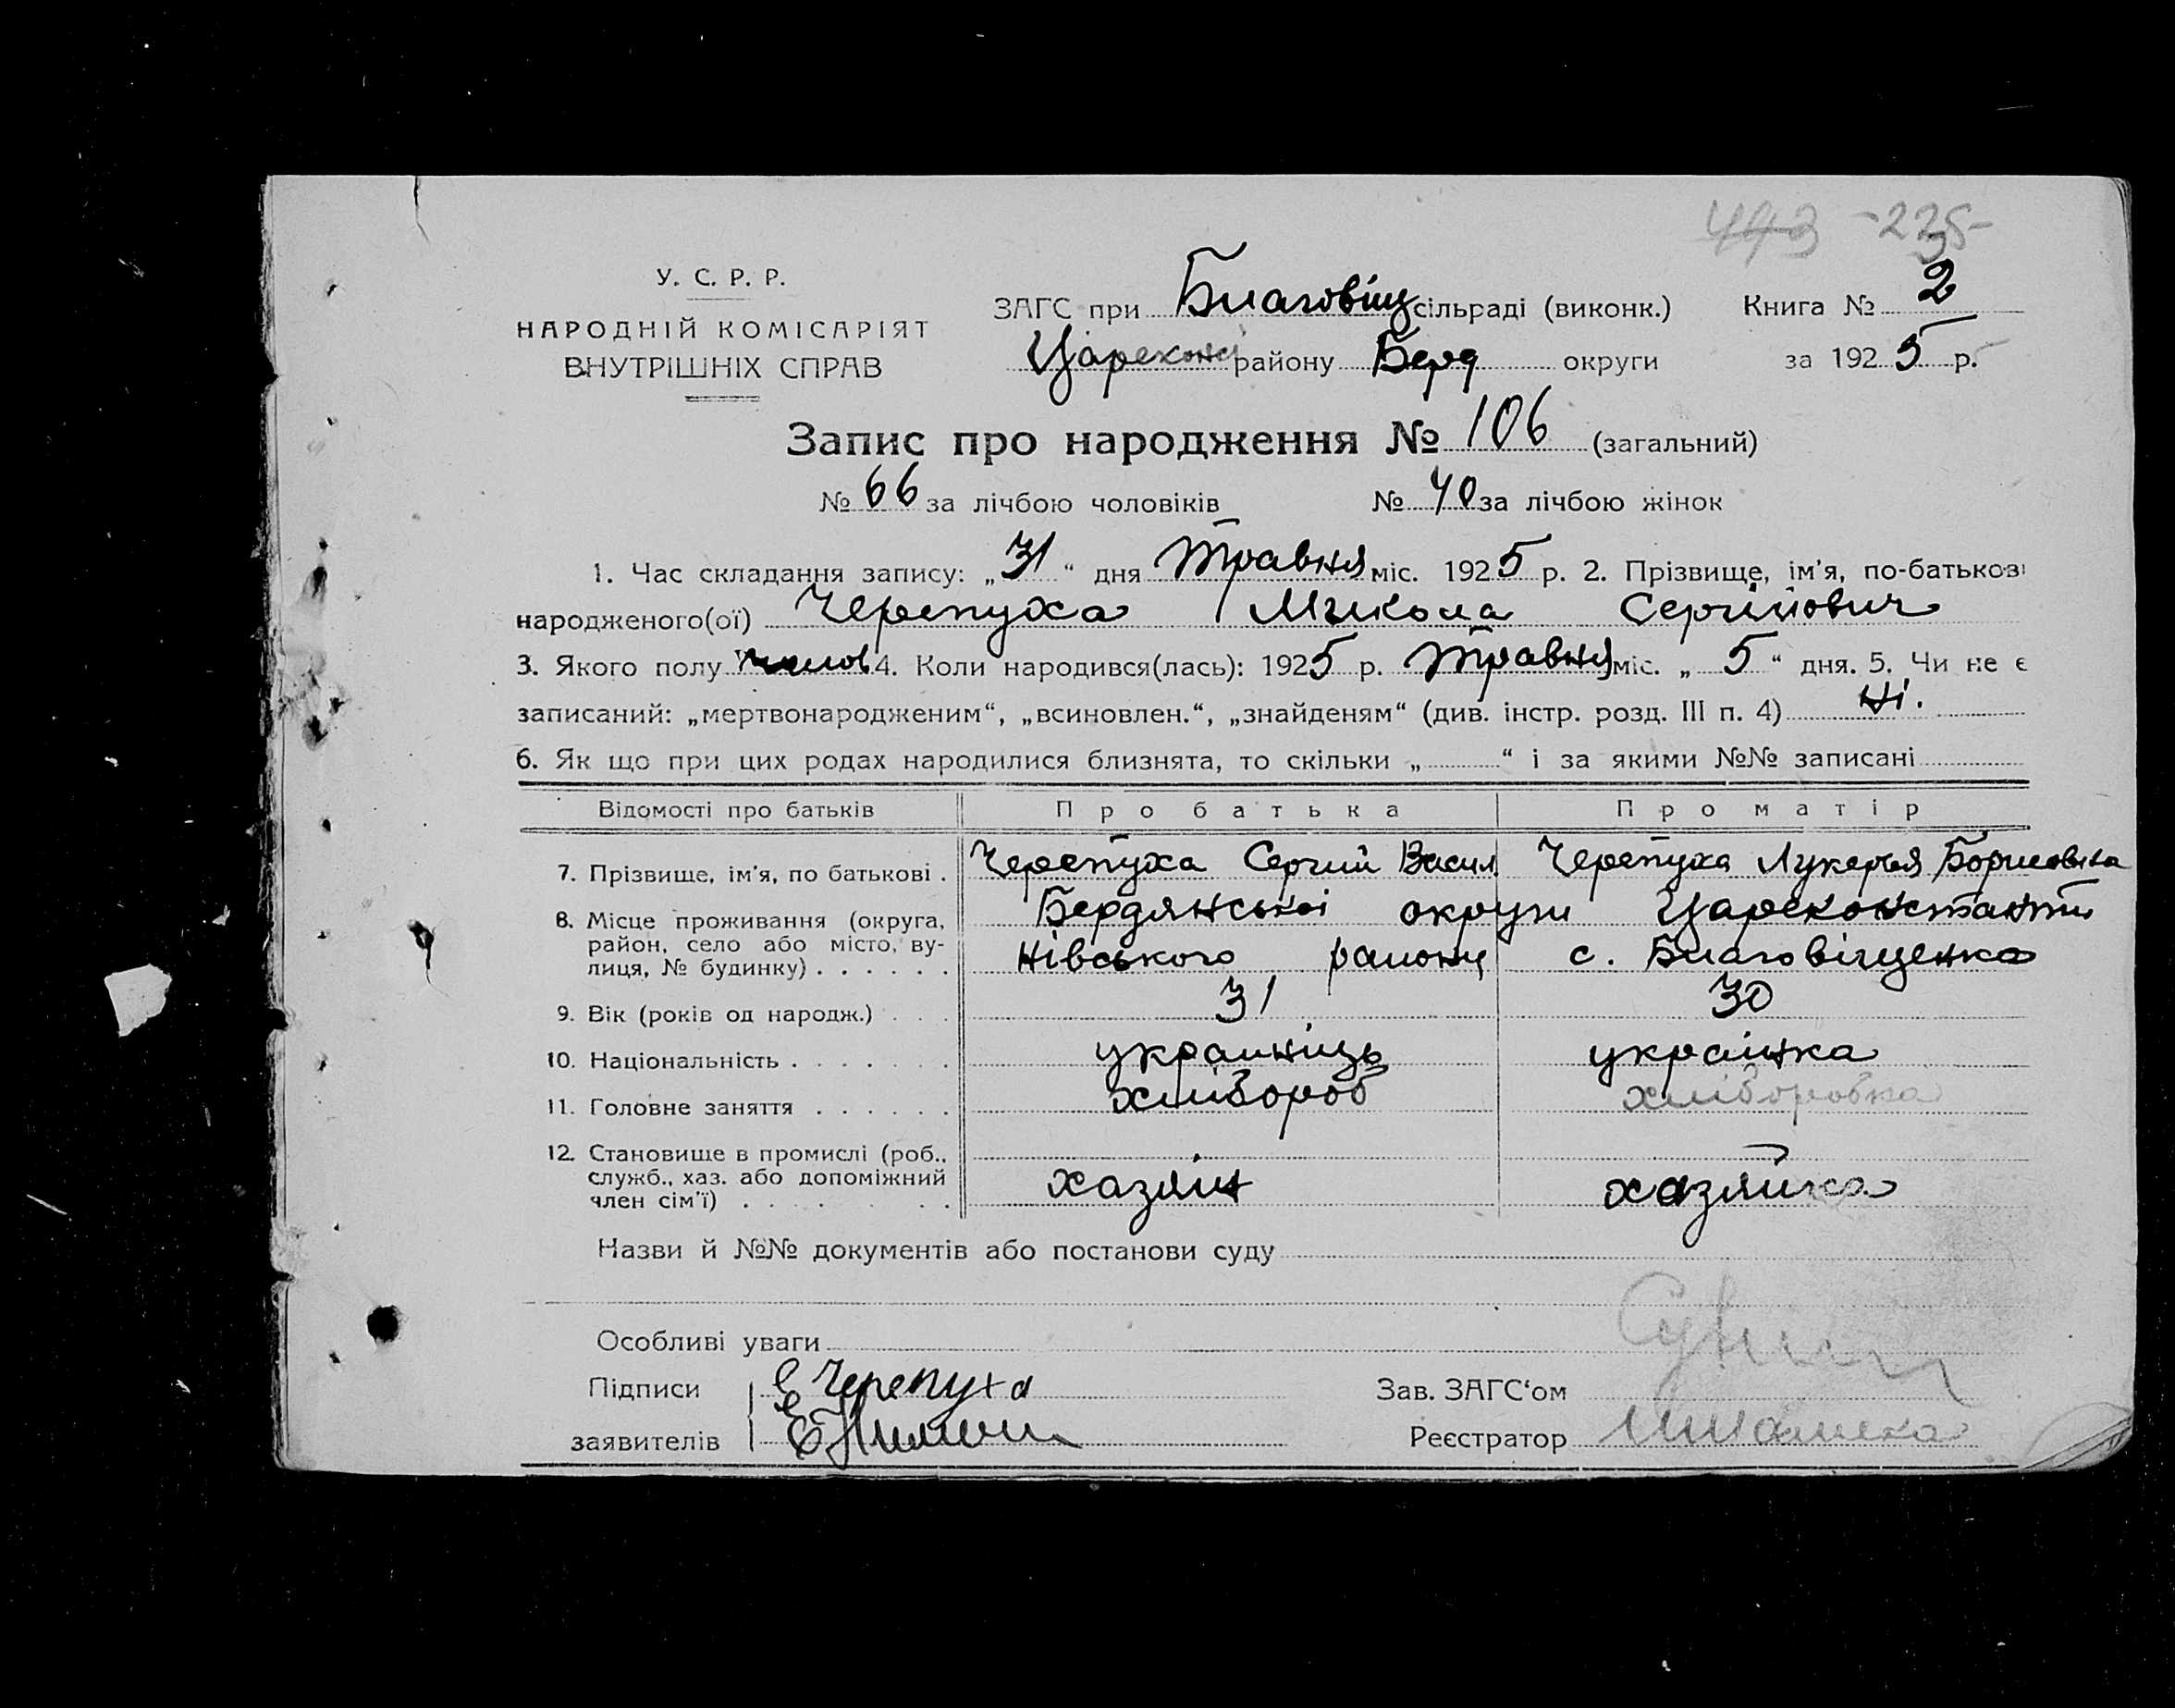 443 -235-
У. С. Р. Р.
НАРОДНІЙ КОМІСАРІЯТ
ВНУТРІШНІХ СПРАВ
ЗАГС при Благовіщ сільраді (виконк.) Книга № 2
Царекон району Берд округи за 1925 р.
Запис про народження № 106 (загальний)
№ 66 за лічбою чоловіків № 40 за лічбою жінок
1. Час складання запису: „31“ дня Травня міс. 1925 р. 2. Прізвище, ім'я, по-батькові
народженого(ої) Черепуха Микола Сергійович
3. Якого полу чолов 4. Коли народився(лась): 1925 р. Травня міс. „5“ дня. 5. Чи не є
записаний: „мертвонародженим“, „всиновлен.“, „знайденям“ (див. інстр. розд. III п. 4) ні.
6. Як що при цих родах народилися близнята, то скільки „ “ і за якими №№ записані
Відомості про батьків Про батька Про матір
7. Прізвище, ім'я, по батькові . Черепуха Сергий Васил Черепуха Лукерья Борисовна
8. Місце проживання (округа, район, село або місто, вулиця, № будинку) . . . . . .
Бердянської округи Цареконстанти
нівського району с. Благовіщенка
9. Вік (років од народж.) . . . 31 30
10. Національність . . . . . . . українць українка
11. Головне заняття . . . . . . хлібороб хліборобка
12. Становище в промислі (роб., служб., хаз. або допоміжний член сім'ї) . . . . . . . хазяїн хазяйка
Назви й №№ документів або постанови суду
Особливі уваги
Підписи С Черепуха Зав. ЗАГС'ом
заявителів Реєстратор